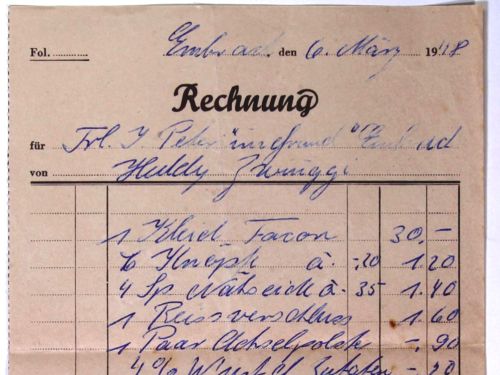 Fol. Embrach, den 6. März 1948
Rechnung
für Frl. I. Peter "im grund" Embrach
von Huldy Zwinggi
1 Kleid Facon 30,-
6 Knöpfe à -.20 1.20
4 Sp. Nähseide à -.35 1.40
1 Reissverschluss 1.60
1 Paar Achselpolster -.90
4% Wust Zutaten -.20